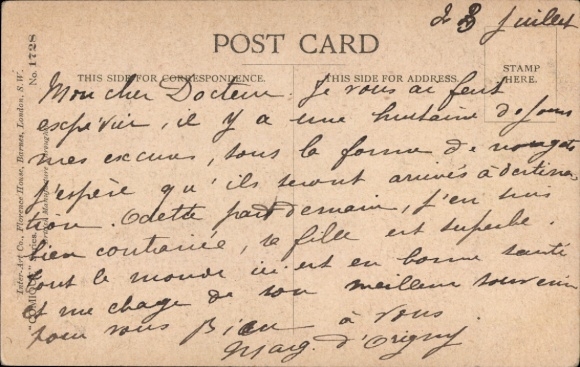 23 Juillet
POST CARD
THIS SIDE FOR CORRESPONDENCE.
THIS SIDE FOR ADDRESS.
STAMP
HERE.
Mon cher Docteur. Je vous ai fait
expédier, il y a une huitaine de jours
mes excuses, sous la forme de nougats
j'espère qu'ils seront arrivés à destina-
tion. Odette part demain, j'en suis
bien contrariée, sa fille est superbe.
tout le monde ici est en bonne santé
et me charge de son meilleur souvenir
pour vous Bien à vous
Marg. d'Origny
Inter-Art Co., Florence House, Barnes, London, S.W.
"COMIQUE" Series. No. 1728
British Manufacture Throughout